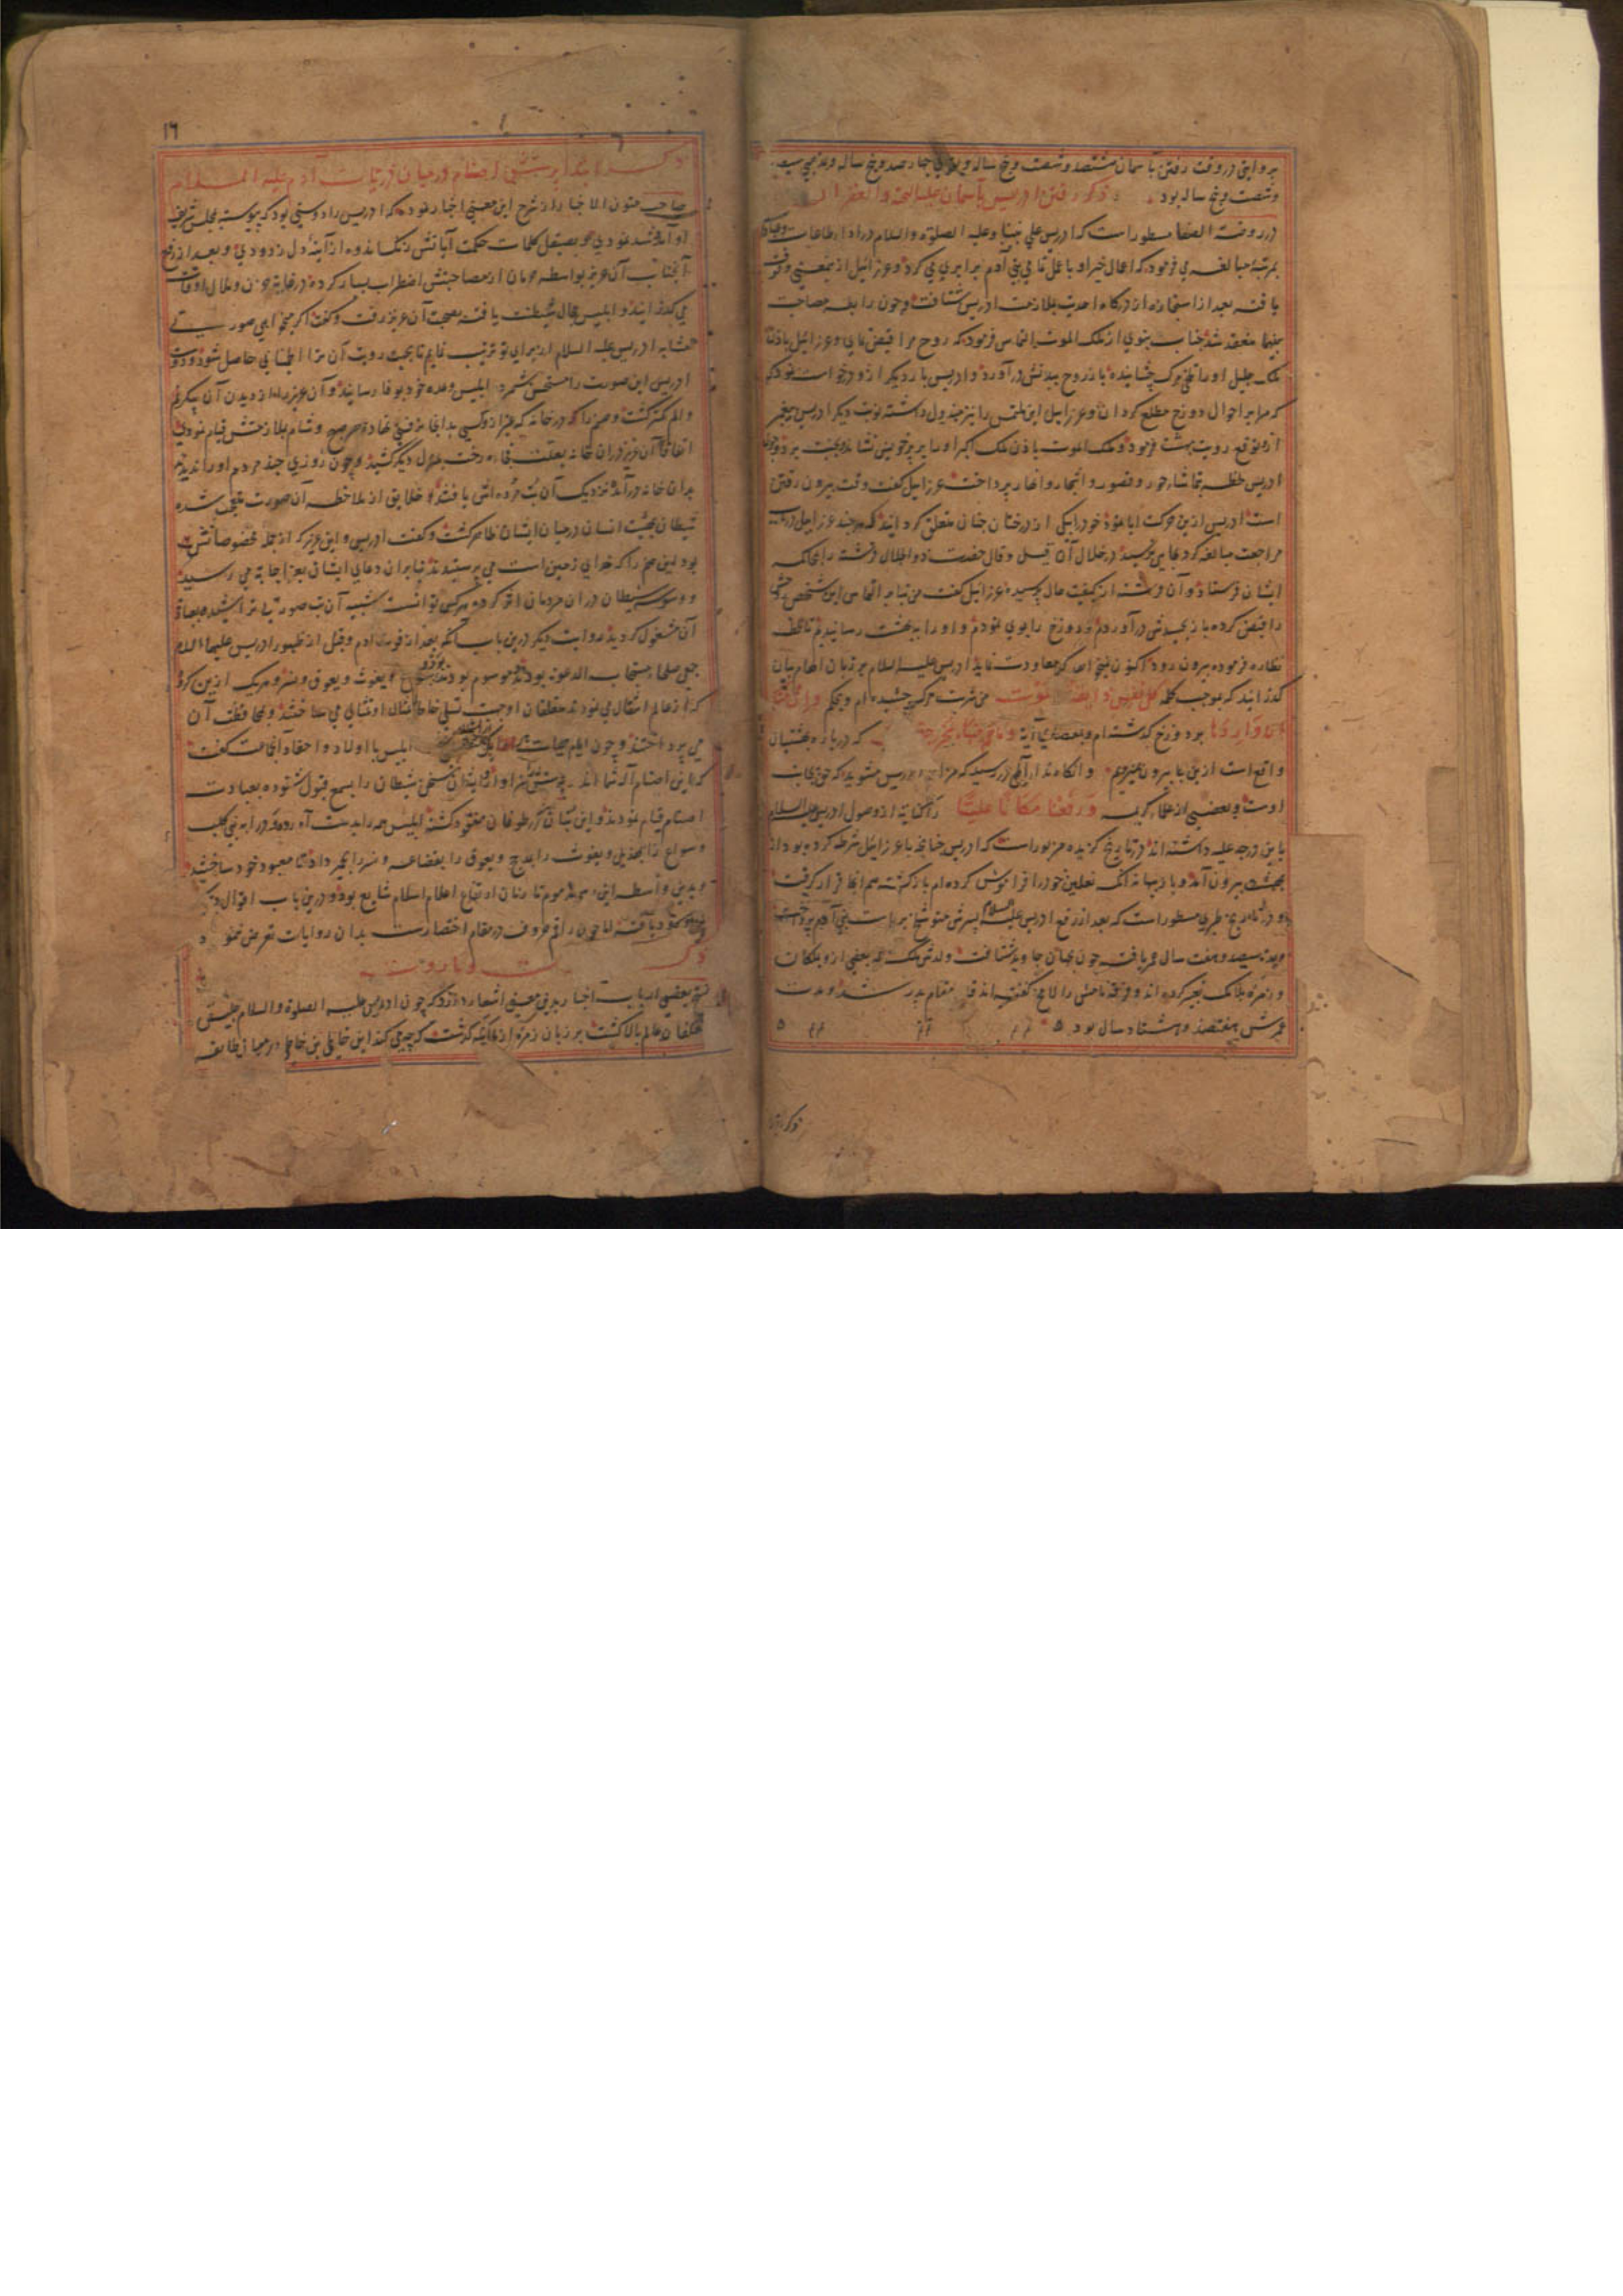 بروایتی در وقت رفتن بآسمان هشتصد و شصت و پنج ساله و بقولی چهارصد و پنج ساله و بمذهبی سیصد
و شصت و پنج ساله بود ذکر رفتن ادریس بآسمان
در روضة الصفا مسطور است که ادریس علی نبینا و علیه الصلوة و السلام در اداء طاعات و عبادات
بمرتبه مبالغه می فرمود که اعمال خیر او با عمل تمامی بنی آدم برابری می کرد و عزرائیل ازینمعنی وقوف
یافته بعد از استجازه از درکاه احدیت بملازمت ادریس شتافت و چون رابطه مصاحبت
بینهما منعقد شد جناب نبوی از ملک الموت التماس فرمود که روح مرا قبض نمای و عزرائیل باذن
ملک جلیل او را تلخی مرک چشانیده باز روح ببدنش در آورد و ادریس بار دیکر ازو درخواست نمود که
که مرا بر احوال دوزخ مطلع کردان و عزرائیل این ملتمس را نیز مبذول داشته نوبت دیکر ادریس پیغمبر
ازو توقع رویت بهشت فرمود و ملک الموت باذن ملک اکبر او را بر پر خویش نشانده بجنت برد و چون
ادریس لحظه بتماشاء حور و قصور و اشجار و انهار پرداخت عزرائیل کفت وقت بیرون رفتن
است ادریس ازین حرکت ابا نموده خود را بیکی از درختان جنان متعلق کردانید هر چند عزرائیل در باب
مراجعت مبالغه کرد بجایی نرسید در خلال آن قیل و قال حضرت ذو الجلال فرشته را بمحاکمه
ایشان فرستاد و آن فرشته از کیفیت حال پرسیده عزرائیل کفت من بنابر التماس این شخص روحش
را قبض کرده باز بجسدش در آوردم و دوزخ را بوی نمودم و او را به بهشت رسانیدم تا لحظه
نظاره فرموده بیرون رود اکنون نمیخواهد که معاودت نماید ادریس علیه السلام بر زبان الهام بیان
کذرانید که بموجب کلمه کل نفس ذائقة الموت من شربت مرک چشیده ام و بحکم و ان منکم
الا واردها بر دوزخ کذشته ام و بمقتضای آیه و ما هم منها بمخرجین که در باره بهشتیان
واقع است ازین جا بیرون نمیروم و انکاه ندا از آلهی در رسید که مزاحم ادریس مشوید که حق بجانب
اوست و بعضی از علما کریمه و رفعناه مکانا علیا را کنایه از وصول ادریس علیه السلام
باین درجه علیه داشته اند و در تاریخ کزیده مزبور است که ادریس چنانچه با عزرائیل شرط کرده بود از
بهشت بیرون آمد و باز ببهانه آنک نعلین خود را فراموش کرده ام باز کشته هم انجا قرار کرفت
و در تاریخ طبری مسطور است که بعد از رفع ادریس علیه السلام پسرش متوشلخ بریاست بنی آدم پرداخت
و چون نهصد و هفت سال عمر یافت جهان جاوید شتافت و لدش لمک که بعضی ازو بلمکان
و زمره بلامک تعبیر کرده اند و فرقه نامش را لامخ کفته اند قایم مقام پدر شد و مدت
عمرش هفتصد و هشتاد سال بود
ذکر ابتدا
١٦
ذکر ابتداء پرستش اصنام در میان ذریات آدم علیه السلام
صاحب متون الاخبار از شرح این معنی اخبار نموده که ادریس را دوستی بود که پیوسته بمجلس شریف
او آمد و شد نمودی و بصیقل کلمات حکمت آیاتش زنک اندوه از آینه دل زدودی و بعد از رفع
آنجناب آن عزیز بواسطه حرمان از مصاحبتش اضطراب بسیار کرده در غایت حزن و ملال اوقات
می کذرانید و ابلیس مجال شیطنت یافته بصحبت آن عزیز رفت و کفت اکر میخواهی صورتی
مشابه ادریس علیه السلام از برای تو ترتیب نمایم تا بجهت رویت آن ترا اطمینانی حاصل شود دوست
ادریس این صورت را مستحسن شمرد ابلیس وعده خود بوفا رسانید و آن عزیز را از دیدن آن پیکر غم
و الم کمتر کشت و صنم را در خانه که غیر از و کسی بدانجا نرفتی نهاد و هر صبح و شام بملازمتش قیام نمودی
اتفاقا آن عزیز در آن خانه بعلت فجاءه رخت بمنزل دیکر کشید و چون روزی چند مردم او را ندیدند
بدان خانه در آمده نزدیک آن بت مرده اش یافتند خلایق از ملاحظه آن صورت متعجب شده
شیطان بهیئت انسان در میان ایشان ظاهر کشت و کفت ادریس و این عزیز که از جمله مخصوصانش
بود این صنم را که خدای زمین است می پرستیدند بنابران دعای ایشان بعز اجابة می رسید
و وسوسه شیطان در آن مردمان اثر کرده هر کس توانست شبیه آن بت صورتی تراشیده بعبادت
آن مشغول کردید و روایت دیکر درین باب آنکه بعد از فوت آدم و قبل از ظهور ادریس علیهما السلام
جمعی صلحاء مستجاب الدعوة بودند موسوم بود و سواع و یغوث و یعوق و نسر و هر یک ازین کروه
که از عالم انتقال می نمودند متعلقان او جهت تسلی خاطر تمثال او تمثالی می ساختند و بمحافظت آن
می پرداختند و چون ایام حیات ابلیس با اولاد و احفاد آنجماعت کفت
که این اصنام آله شما اند پرستش سزاوار و ایشان سخن شیطان را بسمع قبول شنوده بعبادت
اصنام قیام نمودند و این بتان در طوفان مفقود کشته ابلیس همه را بدست آورده ود را به بنی کلب
و سواع را بهذیل و یغوث را بمذحج و یعوق را بقضاعه و نسر را بحمیر داد تا معبود خود ساختند
و بدین واسطه این رسم مذموم تا زمان ارتفاع اعلام اسلام شایع بود و درین باب اقوال دیکر
ورود یافته اما چون راقم حروف در مقام اختصارست بدان روایات تعرض ننمود
ذکر هاروت و ماروت
بعضی ارباب اخبار بدین معنی اشعار دارند که چون ادریس علیه الصلوة و السلام جلیس
معتکفان عالم بالا کشت بر زبان زمره از ملایکه کذشت که چه می کند این خاطی بن خاطی در میان طایفه